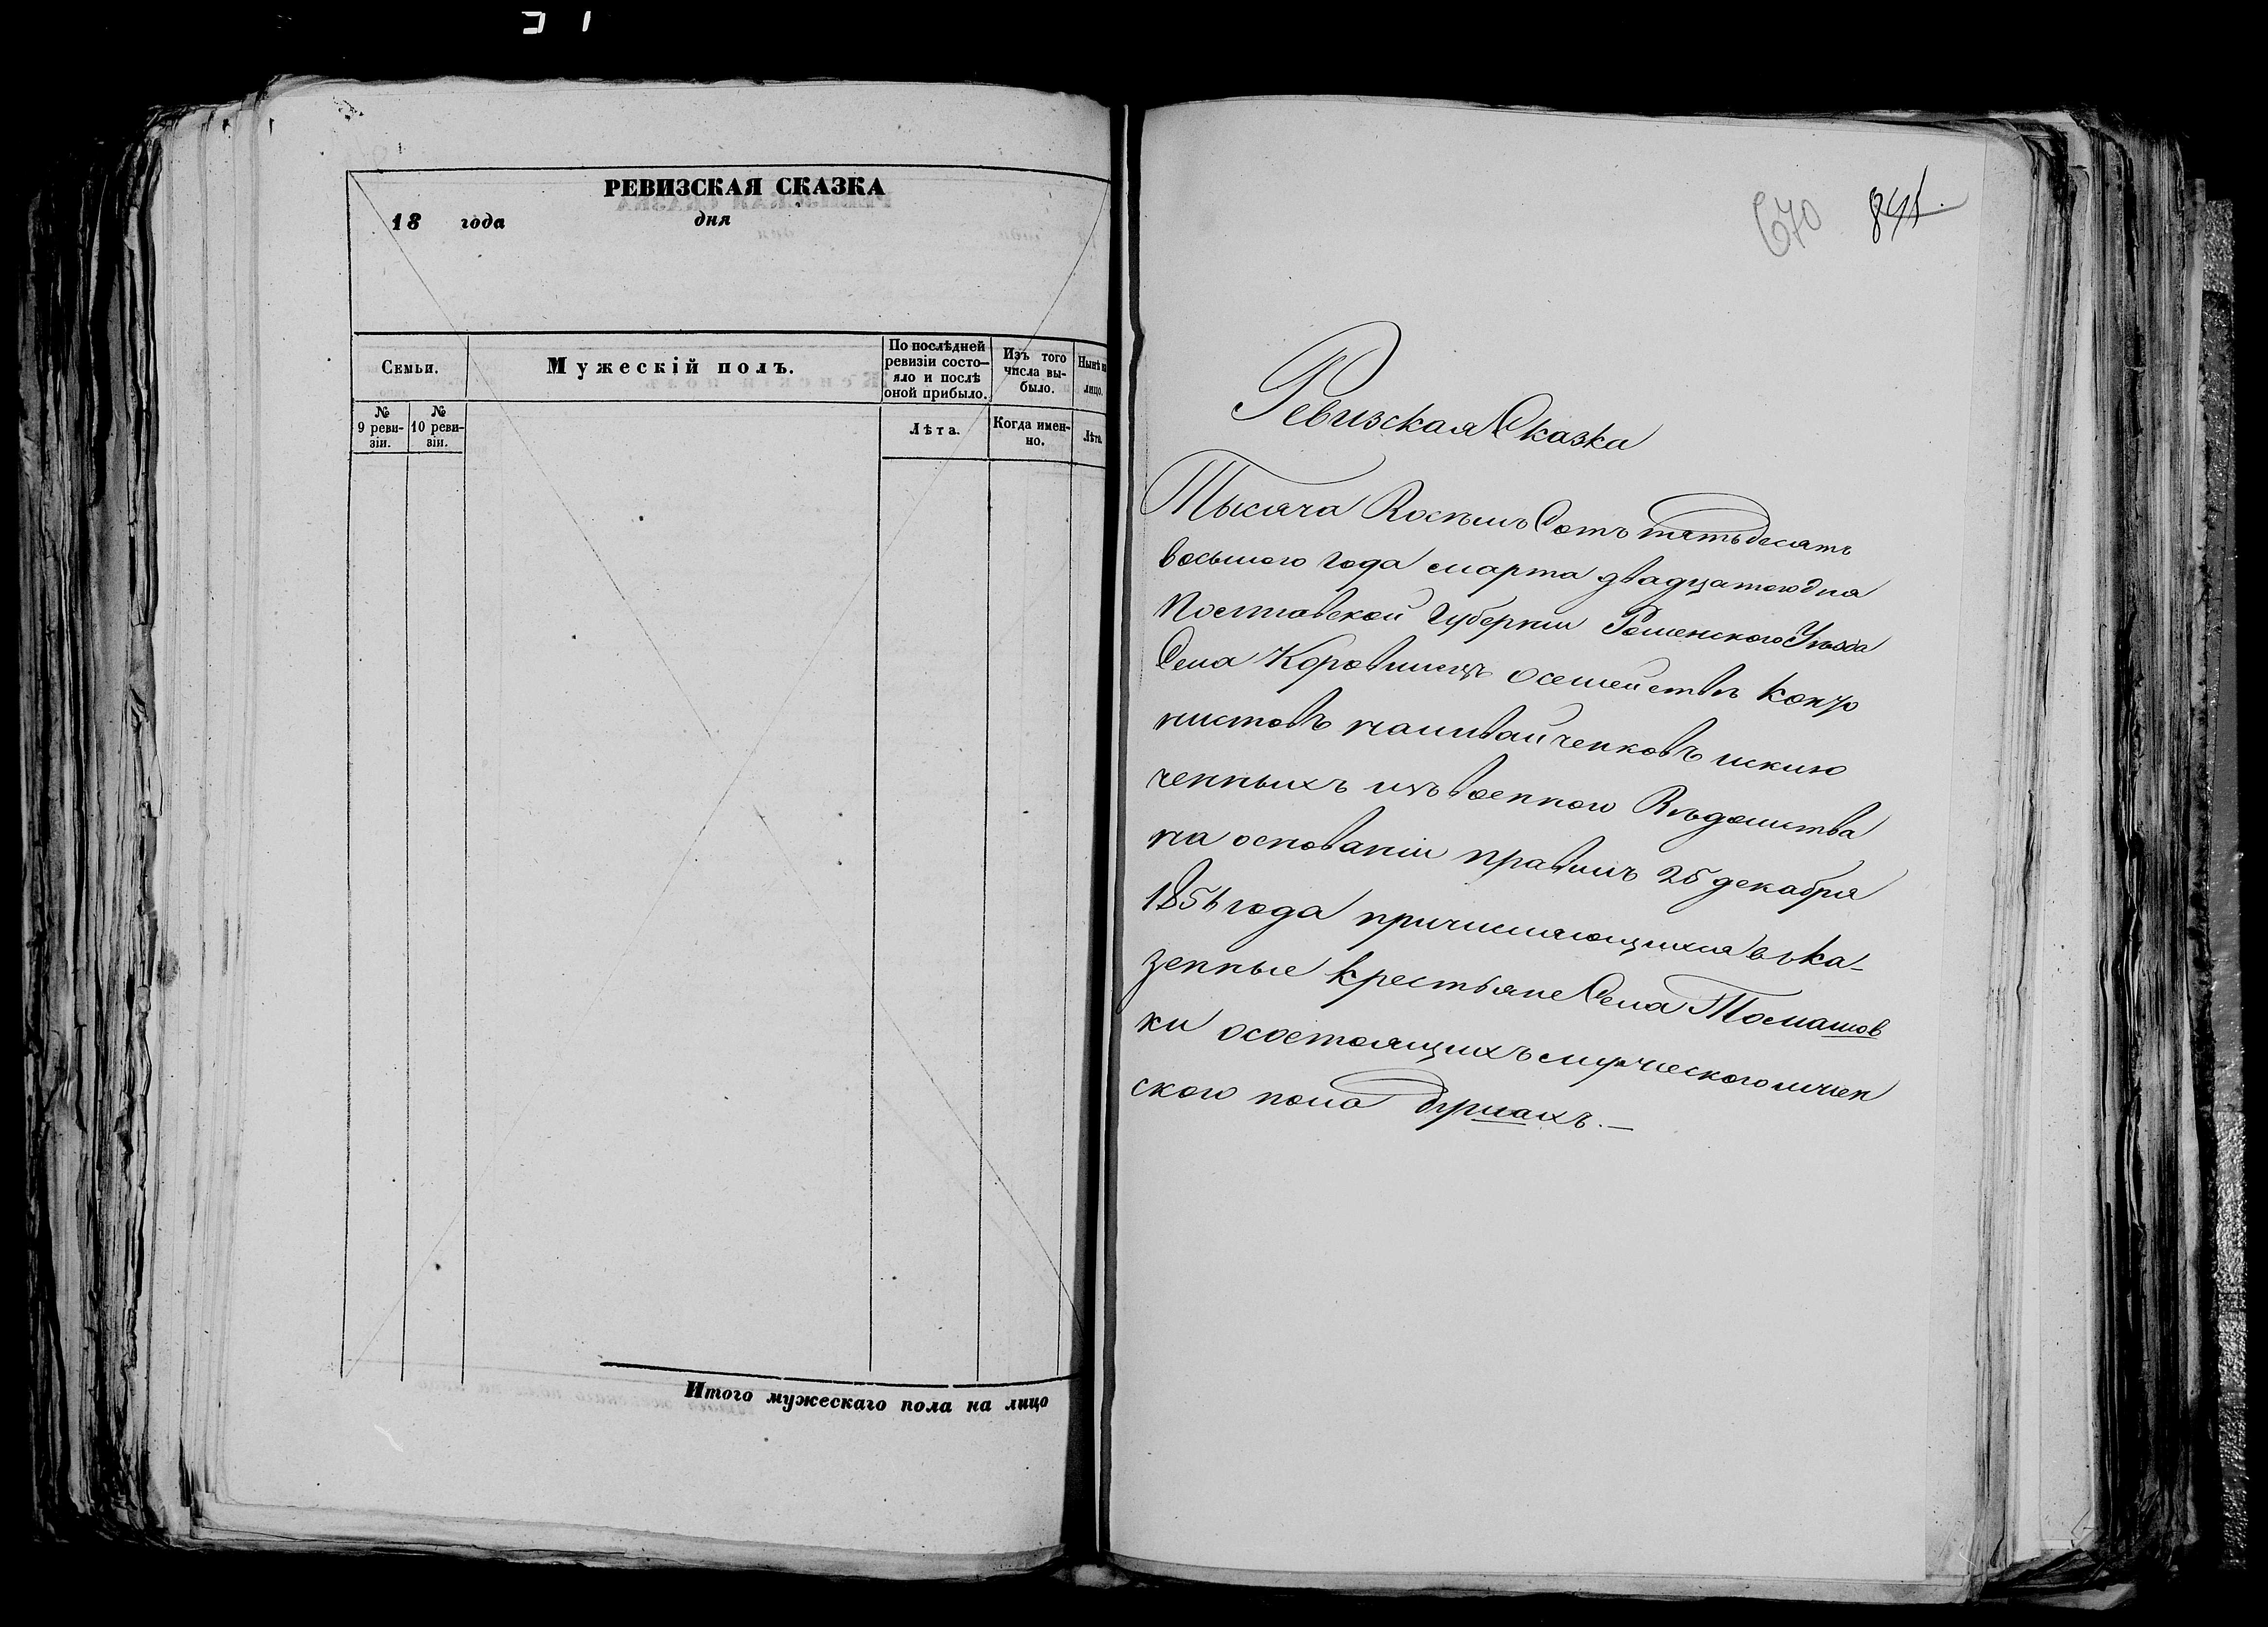 РЕВИЗСКАЯ СКАЗКА
18 года дня
Семьи.
Мужескій полъ.
По послѣдней
ревизіи состо-
яло и послѣ
оной прибыло.
Изъ того
числа вы-
было.
Нынѣ на
лицо.
№
9 реви-
зіи.
№
10 реви-
зіи.
Лѣта.
Когда имен-
но.
Лѣта.
Итого мужескаго пола на лицо
670 845
Ревизская Сказка
Тысяча Восемь Сотъ пятьдесятъ
восьмого года марта двадцатого дня
Полтавской Губерніи Роменского Уѣзда
Села Коровинецъ о семействѣ канто
нистовъ Наливайченковъ исклю
ченныхъ изъ военного Вѣдомства
на основаніи правилъ 25 декабря
1856 года причисляющихся въ ка-
зенные крестьяне Села Томашов
ки о состоящихъ мужческого и жен
ского пола душахъ.—